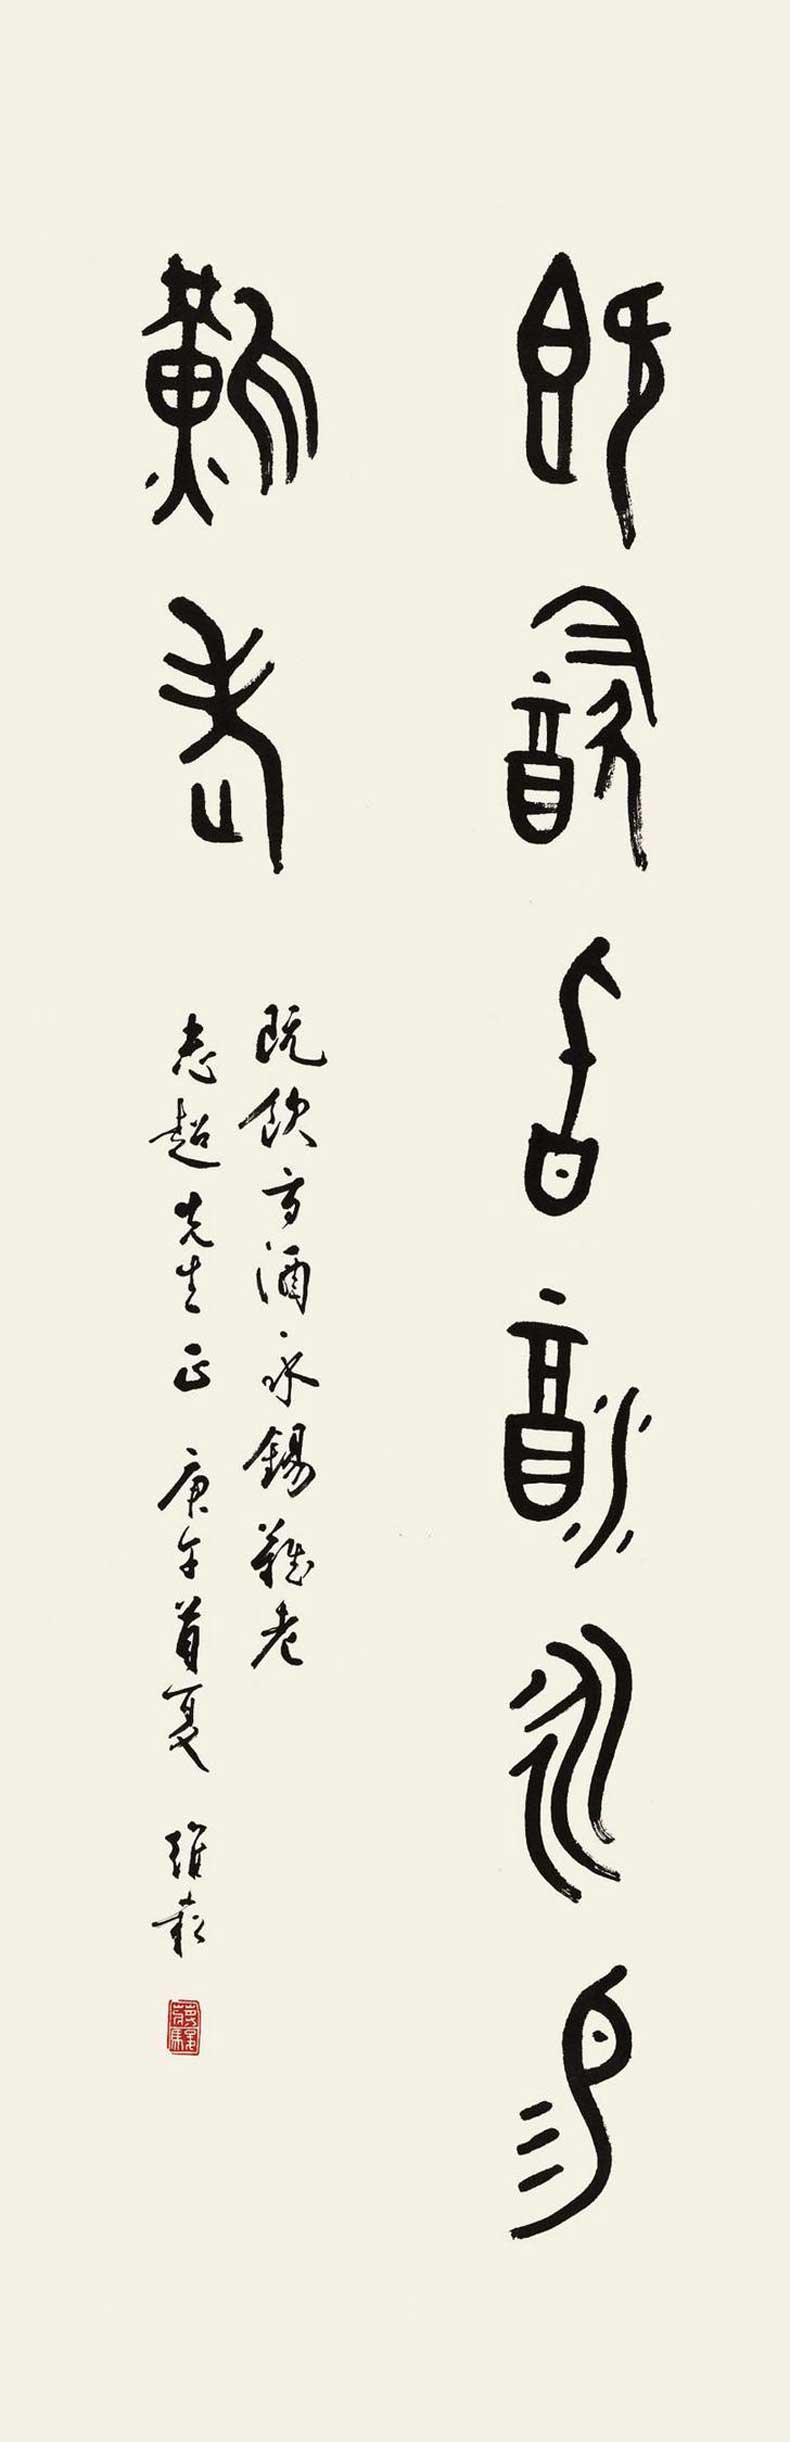 既飲旨酒永錫
難老
既飲旨酒永錫難老
志超先生正 庚午首夏 維崧
蔣維崧